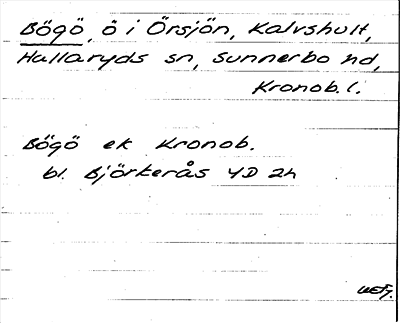 Bögö, ö i Örsjön, Kalvshult,
Hallaryds sn, Sunnerbo hd,
Kronob. l.
Bögö ek Kronob.
bl. Björkerås 4D 2h